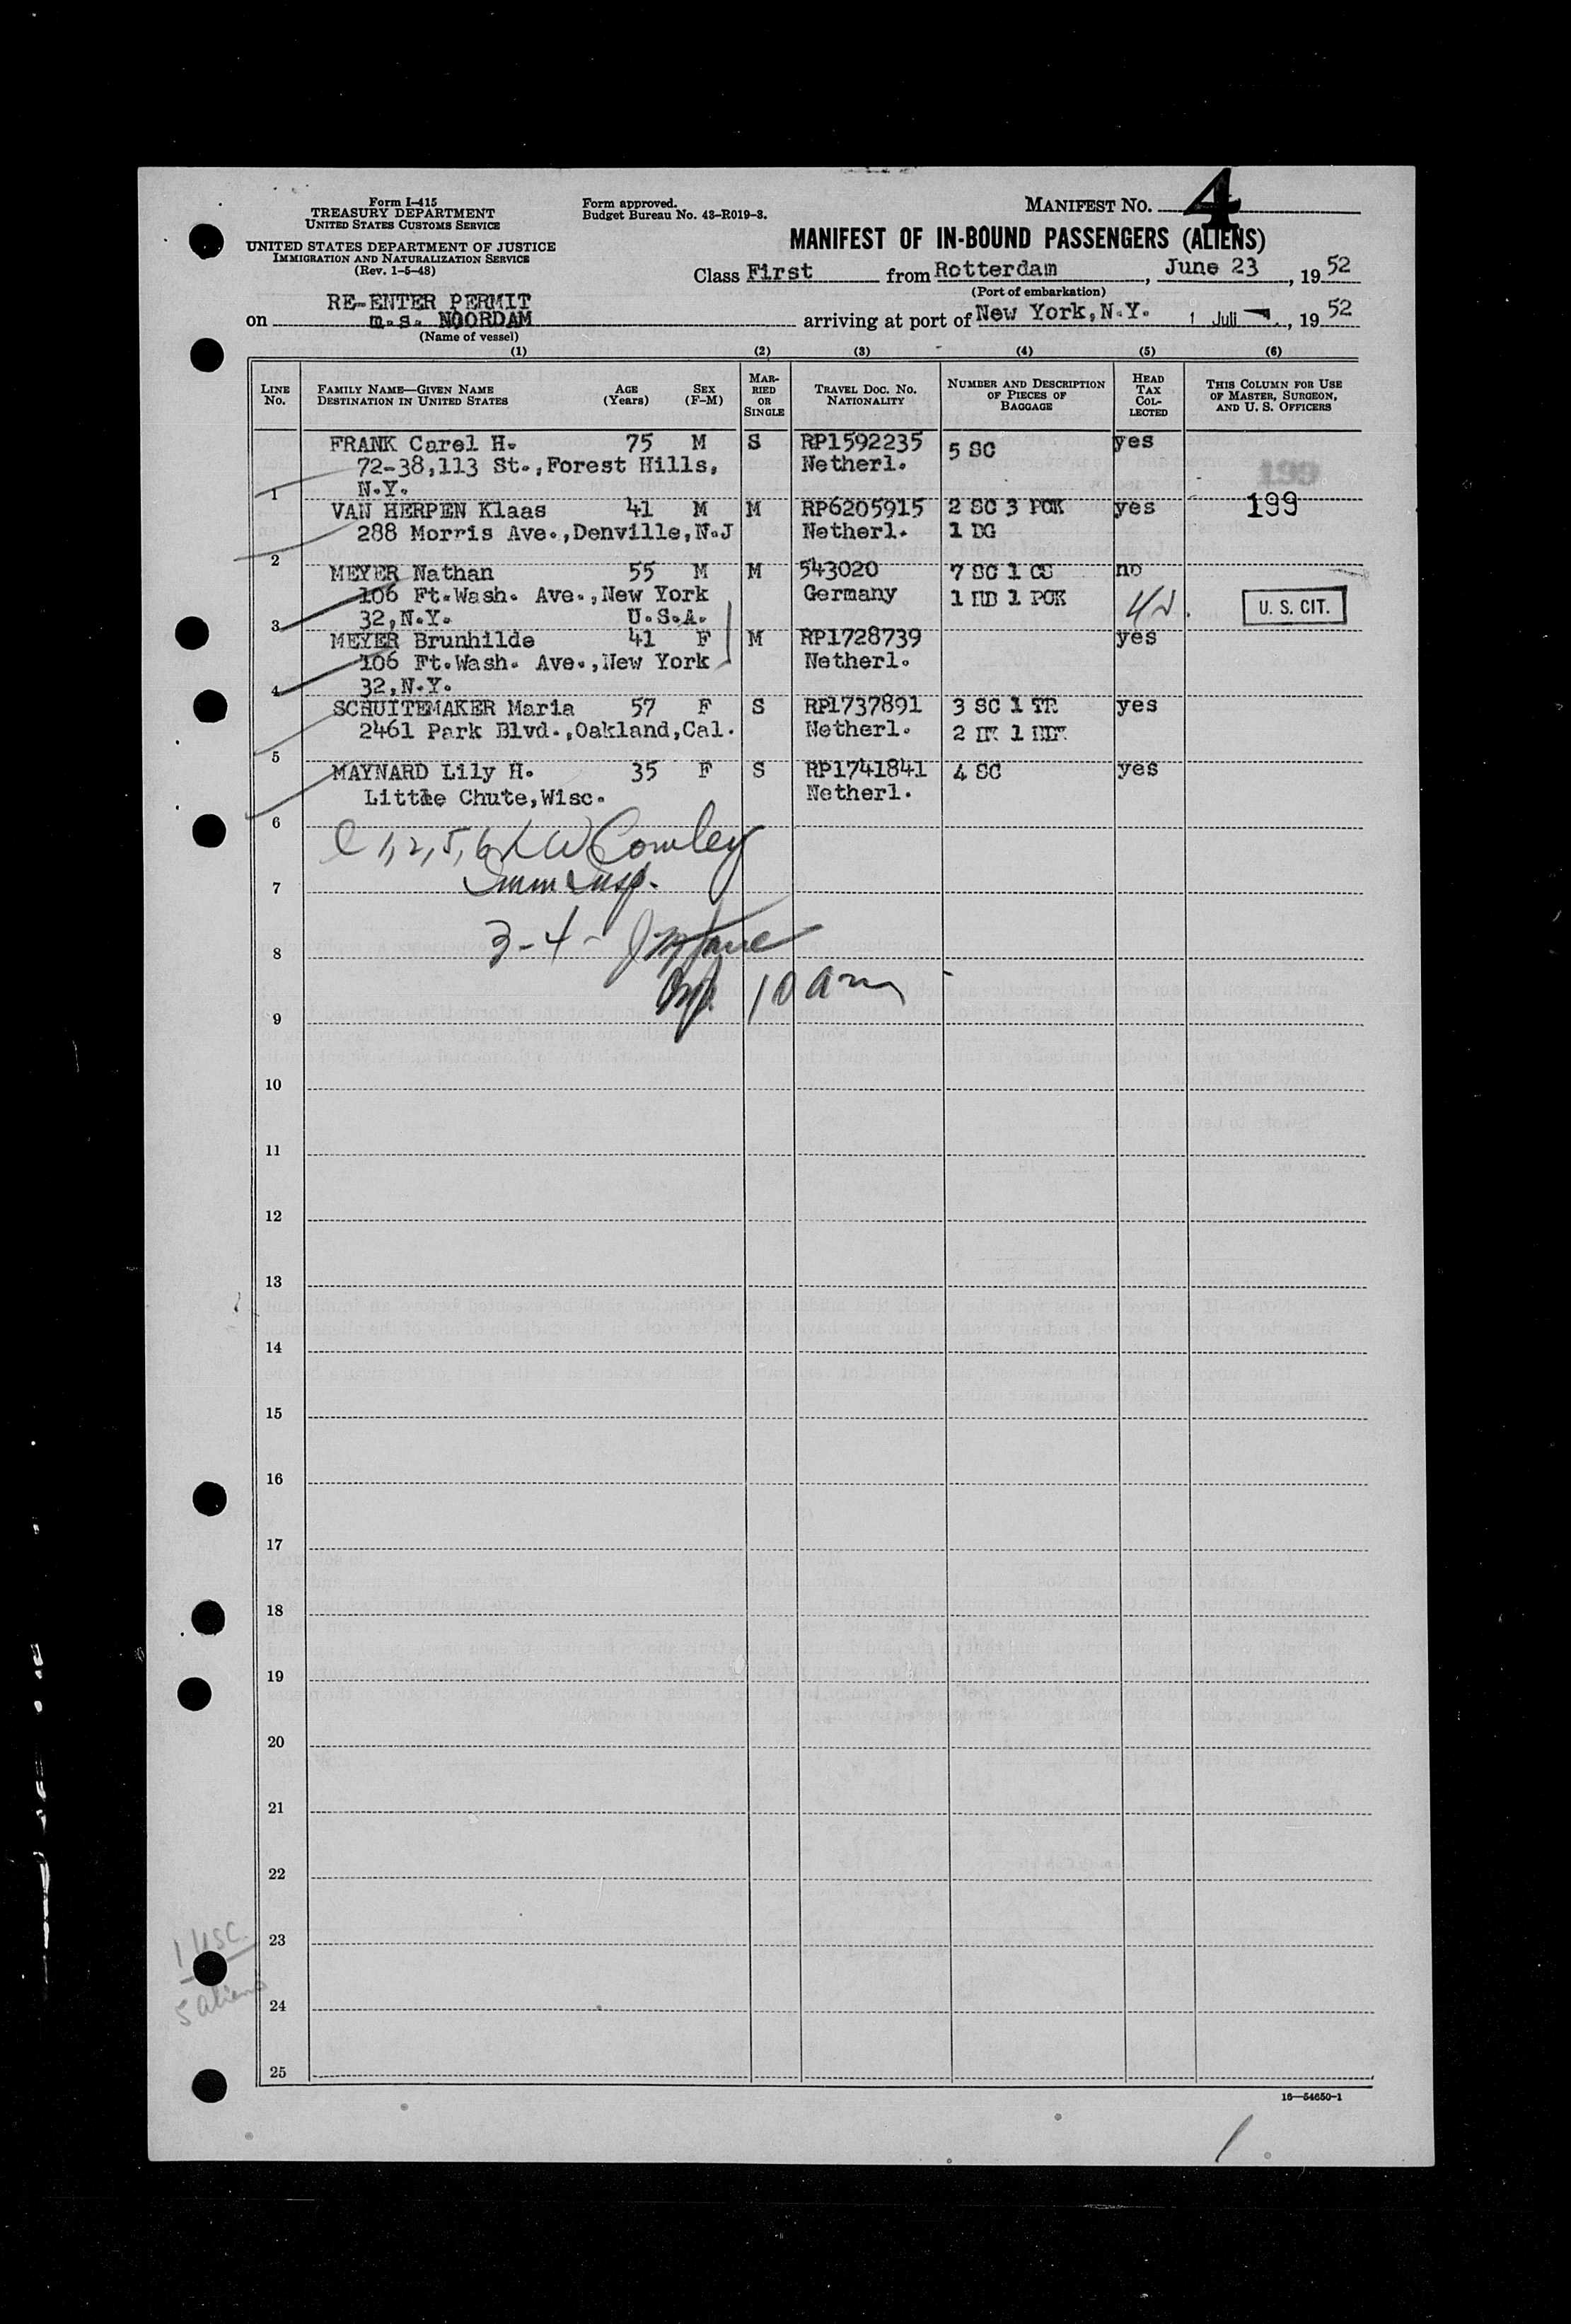 Form I-415
TREASURY DEPARTMENT
UNITED STATES CUSTOMS SERVICE
UNITED STATES DEPARTMENT OF JUSTICE
IMMIGRATION AND NATURALIZATION SERVICE
(Rev. 1-5-48)
Form approved.
Budget Bureau No. 43-R019-3.
MANIFEST NO. 4
MANIFEST OF IN-BOUND PASSENGERS (ALIENS)
Class First from Rotterdam, June 23, 1952
(Port of embarkation)
RE-ENTER PERMIT
on m.s. NOORDAM arriving at port of New York, N.Y. 1 Juli, 1952
(Name of vessel)
(1) (2) (3) (4) (5) (6)
LINE No. FAMILY NAME—GIVEN NAME DESTINATION IN UNITED STATES AGE (Years) SEX (F-M) MARRIED OR SINGLE TRAVEL DOC. NO. NATIONALITY NUMBER AND DESCRIPTION OF PIECES OF BAGGAGE HEAD TAX COLLECTED THIS COLUMN FOR USE OF MASTER, SURGEON, AND U. S. OFFICERS
FRANK Carel H. 75 M S RP1592235 5 SC yes
72-38,113 St.,Forest Hills, Netherl.
1 N.Y. 199
VAN HERPEN Klaas 41 M M RP6205915 2 SC 3 PCK yes 199
288 Morris Ave.,Denville,N.J Netherl. 1 DG
2
MEYER Nathan 55 M M 543020 7 SC 1 CS no
106 Ft.Wash. Ave.,New York Germany 1 HD 1 PCK
3 32,N.Y. U.S.A. U. S. CIT.
MEYER Brunhilde 41 F M RP1728739 yes
106 Ft.Wash. Ave.,New York Netherl.
4 32,N.Y.
SCHUITEMAKER Maria 57 F S RP1737891 3 SC 1 TR yes
2461 Park Blvd.,Oakland,Cal. Netherl. 2
5
MAYNARD Lily H. 35 F S RP1741841 4 SC yes
Little Chute,Wisc. Netherl.
6
1,2,5,6 W Cowley
7 Imm Insp.
8 3-4-
9 10 am
10
11
12
13
14
15
16
17
18
19
20
21
22
23
1 USC
24
5 aliens
25
16—54650-1